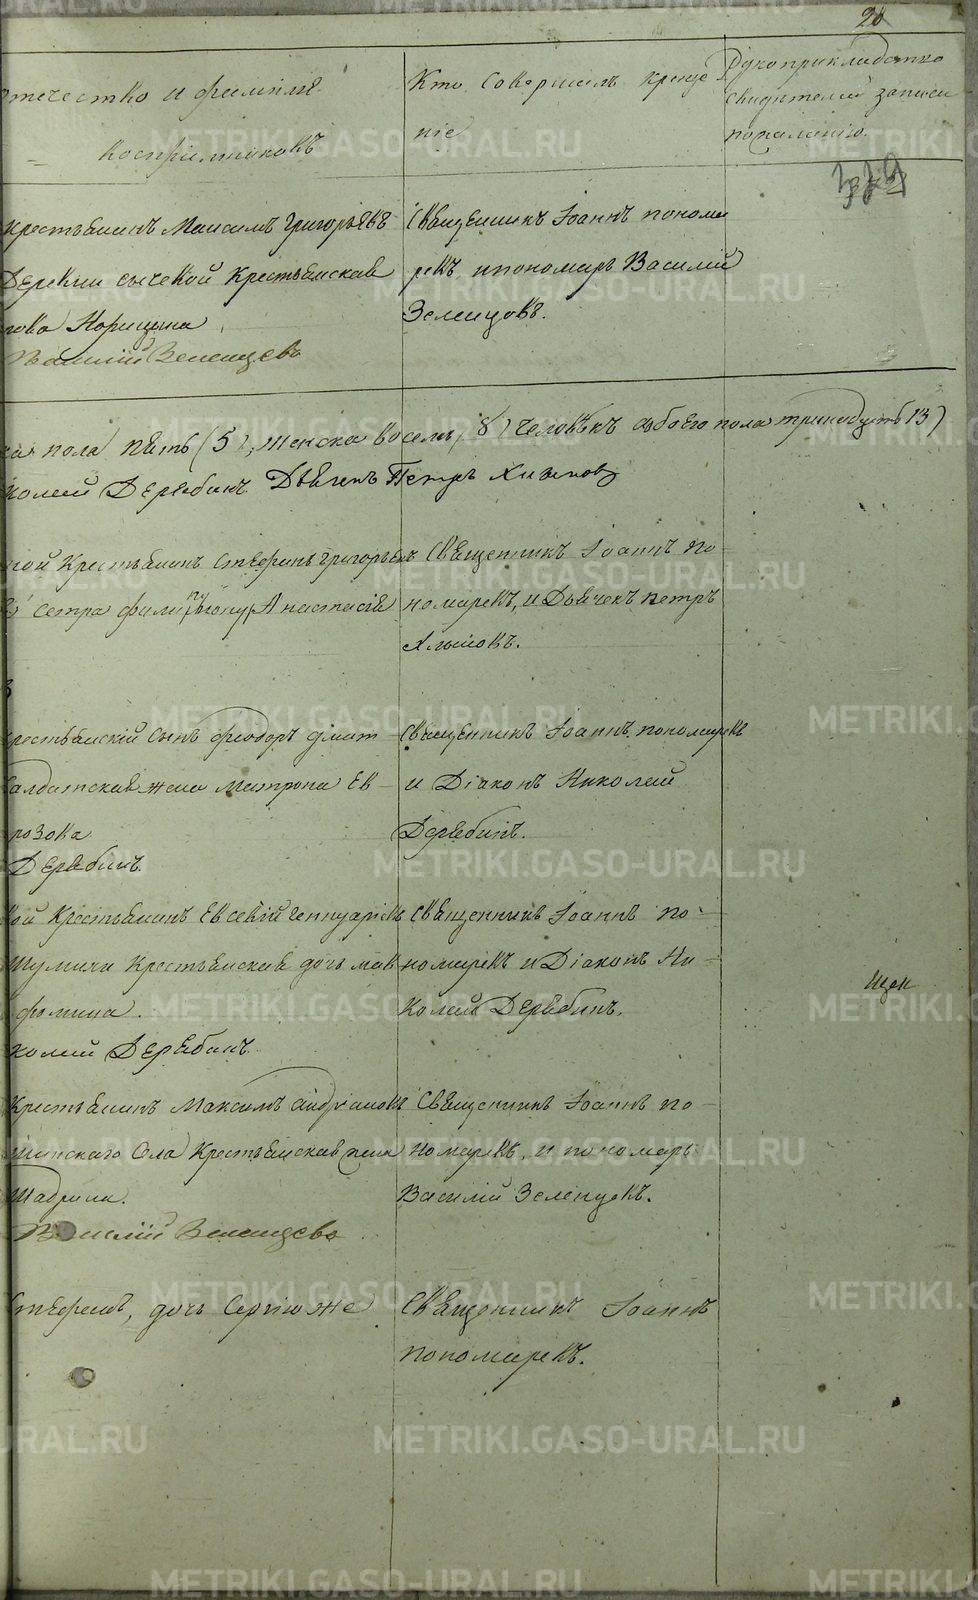 20
Отечество и фамилія
воспріемниковъ
Кто совершилъ креще
ніе
Рукоприкладство
свидѣтелей записи
по желанію.
крестьянинъ Максимъ Григорьевъ
деревни сычевой крестьянская
Норицина
Василій Зеленцовъ
Священникъ Іоаннъ понома
ревъ, и пономарь Василій
Зеленцовъ.
пола пять (5), женска восемь (8) человѣкъ обоего пола тринадцать 13)
колай Дерябинъ Дьячекъ Петръ Хлыновъ
ной Крестьянинъ Стефанъ Григорьевъ
сетра Анастасія
Священникъ Іоаннъ По
номаревъ, и Дьячекъ Петръ
Хлыновъ.
крестьянскій сынъ феодоръ дмит
салдатская жена Матрона Ев
розова
Дерябинъ
Священникъ Іоаннъ пономаревъ
и Діаконъ Николай
Дерябинъ.
вой Крестьянинъ Евсевій Геннуаріевъ
Шумихи крестьянская дочь мав
фомина.
колай Дерябинъ
Священникъ Іоаннъ По
номаревъ и Діаконъ Ни
колай Дерябинъ.
Крестьянинъ Максимъ Андріановъ
шинскаго Села Крестьянская жена
Шадрина.
Василій Зеленцовъ
Священникъ Іоаннъ По
номаревъ, и пономарь
Василій Зеленцовъ.
Стефанъ, дочь Сергію же
Священникъ Іоаннъ
Пономаревъ.
METRIKI.GASO-URAL.RU